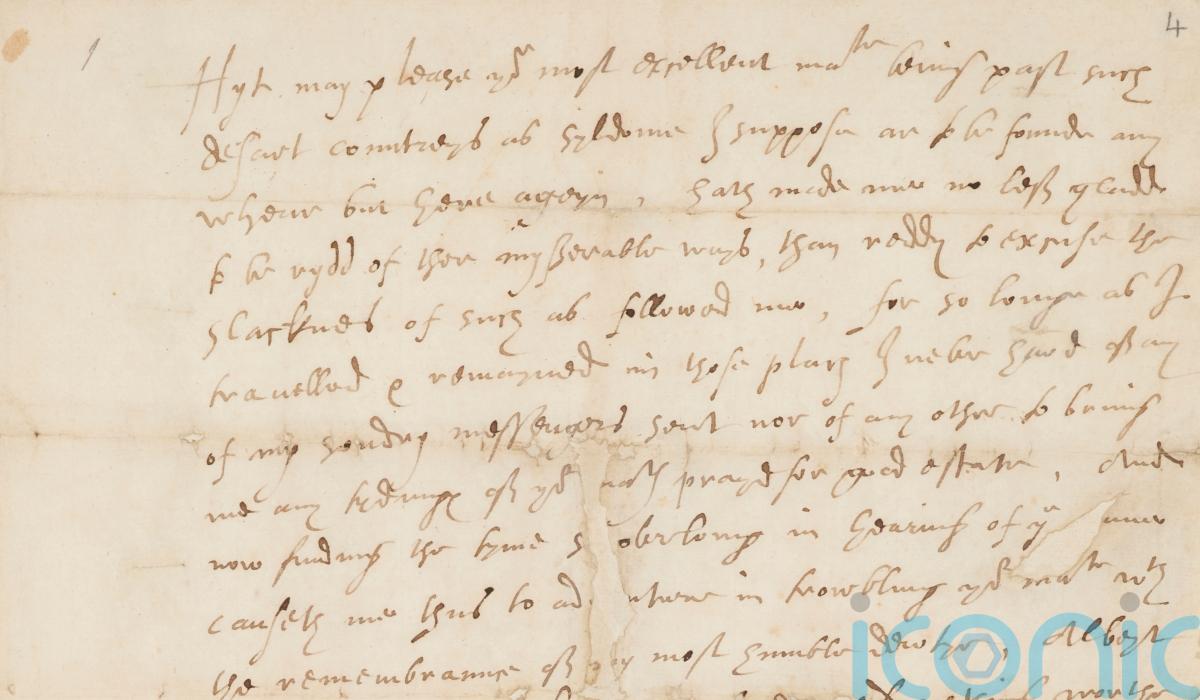 4
Hyt may please yor most excellent matie being past such
desart countreys as syldome I suppose ar to be founde any
whear but here ageyn, hath made me no less gladde
to be rydd of ther mysserable ways, than reddy to excuse the
slacknes of such as followed me, for so longe as I
travelled & remayned in those places I never hard of any
of my sondry messengers sent nor of any other to bring
me any tydings of yor prayd for good estate, And
now finding the tyme overlong in hearing of
causeth me thus to ad nture in trowbling yor matie wth
the remembrance of my most humble dewtye, Albeyt
worthe
iconic